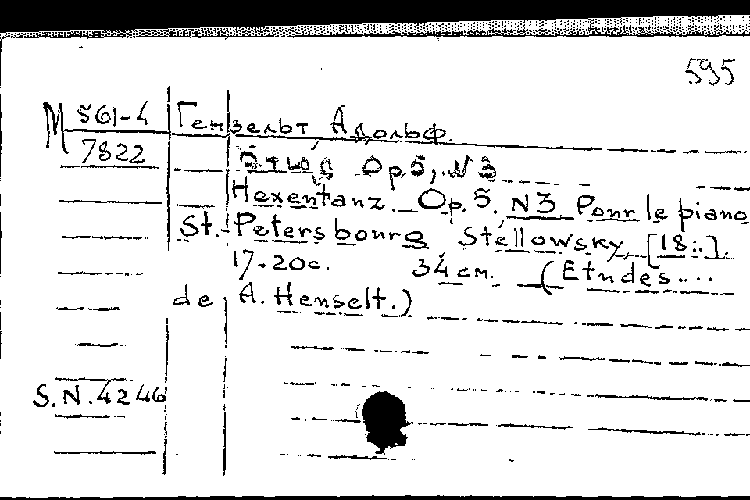 595
М 561-4
7822
Гензельт Адольф.
Этюд Op. 5, N 3
Hexentanz. Op. 5. N3 Pour le piano
St.-Petersbourg Stellowsky, [18..].
17-20с. 34 см. (Etudes...
de A. Henselt.)
S.N.4246